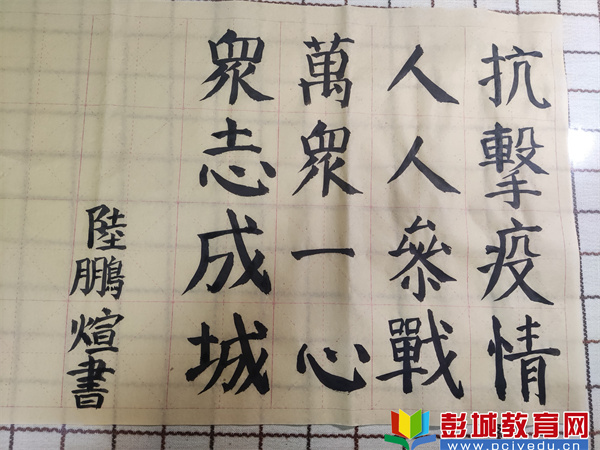 抗擊疫情
人人參戰
萬眾一心
眾志成城
陸鵬煊書
彭城教育网
www.pcjyedu.cn